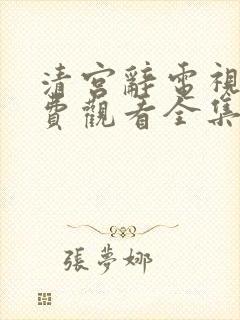 清宮辭電視
費觀看全集
張夢娜